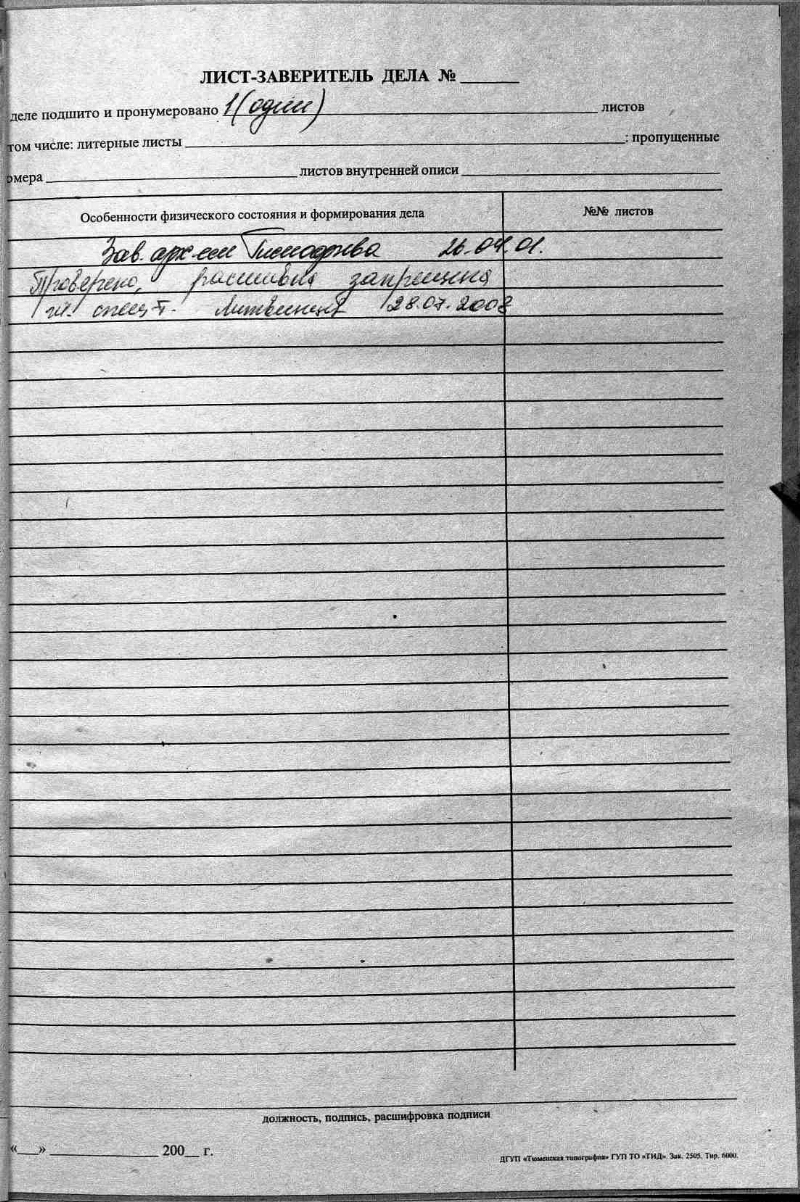 ЛИСТ-ЗАВЕРИТЕЛЬ ДЕЛА № ______
деле подшито и пронумеровано 1 (один) листов
том числе: литерные листы ; пропущенные
омера листов внутренней описи
Особенности физического состояния и формирования дела №№ листов
Зав. арх-ом 26.04.01.
Проверено, расшивка запрещена
гл. спец-т. 28.07.2008
должность, подпись, расшифровка подписи
«__» ____________ 200__ г.
ДГУП «Тюменская типография» ГУП ТО «ТИД». Зак. 2505. Тир. 6000.